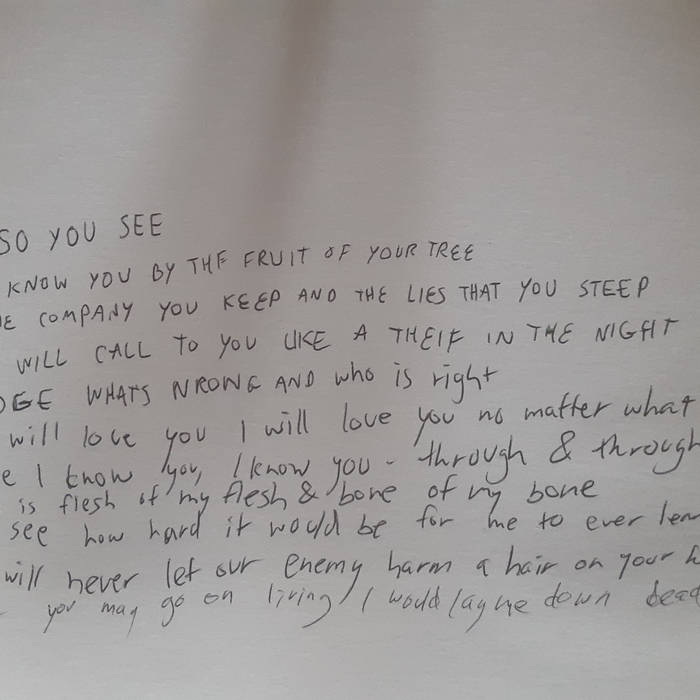 SO YOU SEE
KNOW YOU BY THE FRUIT OF YOUR TREE
E COMPANY YOU KEEP AND THE LIES THAT YOU STEEP
WILL CALL TO YOU LIKE A THEIF IN THE NIGHT
DGE WHATS WRONG AND who is right
will love you I will love you no matter what
e I know you, I know you - through & through
is flesh of my flesh & bone of my bone
see how hard it would be for me to ever lea
will never let our enemy harm a hair on your h
you may go on living I would lay me down dead